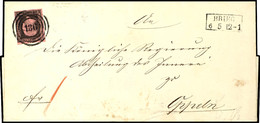 BRIEG
6 5 12-1
186
An
Die Königliche Regierung
Abtheilung des Innern
zu
Oppeln